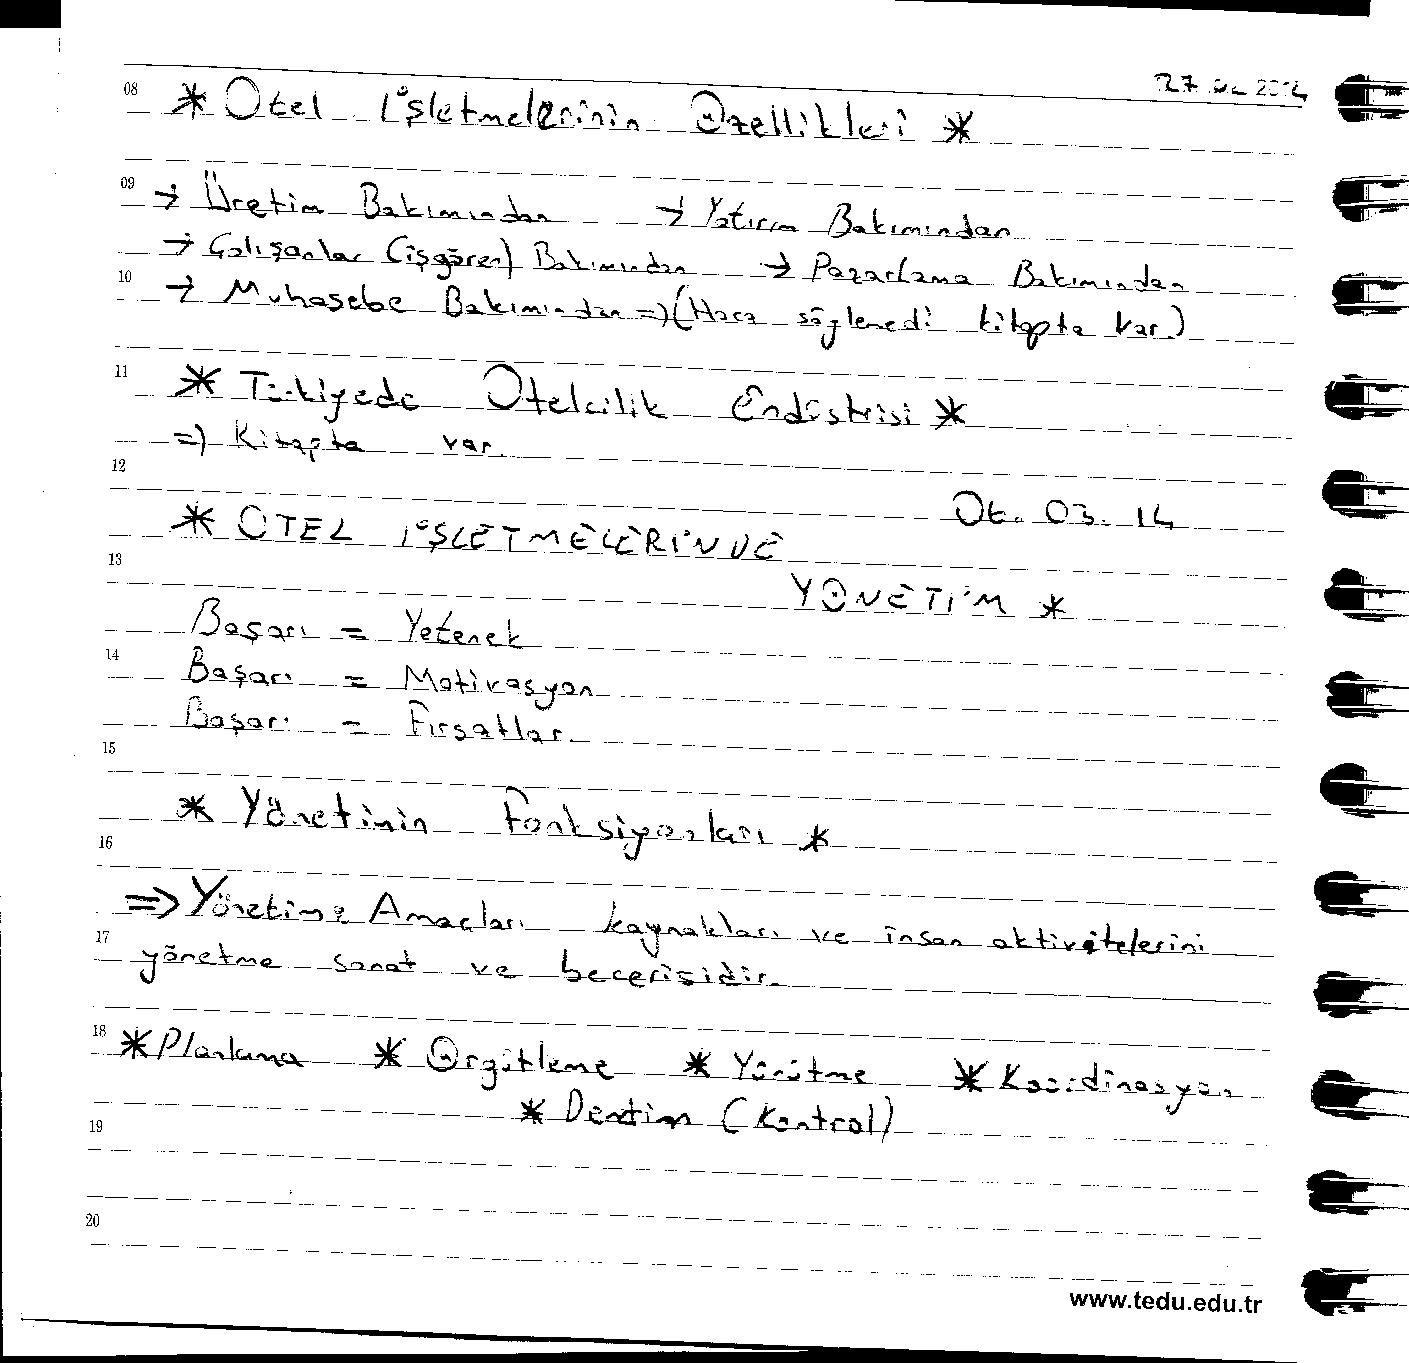 08
* Otel İşletmelerinin Özellikleri *
09
→ Üretim Bakımından → Yatırım Bakımından
→ Çalışanlar (işgören) Bakımından → Pazarlama Bakımından
10
→ Muhasebe Bakımından => (Hoca söylemedi kitapta var.)
11
* Türkiyede Otelcilik Endüstrisi *
=> Kitapta var.
12
04.03.14
* OTEL İŞLETMELERİNDE
13
YÖNETİM *
Başarı = Yetenek
14
Başarı = Motivasyon
Başarı = Fırsatlar
15
* Yönetimin Fonksiyonları *
16
=> Yönetim: Amaçları kaynakları ve insan aktivitelerini
17
yönetme sanat ve becerisidir.
18
* Planlama * Örgütleme * Yürütme * Koordinasyon
* Denetim (Kontrol)
19
20
www.tedu.edu.tr